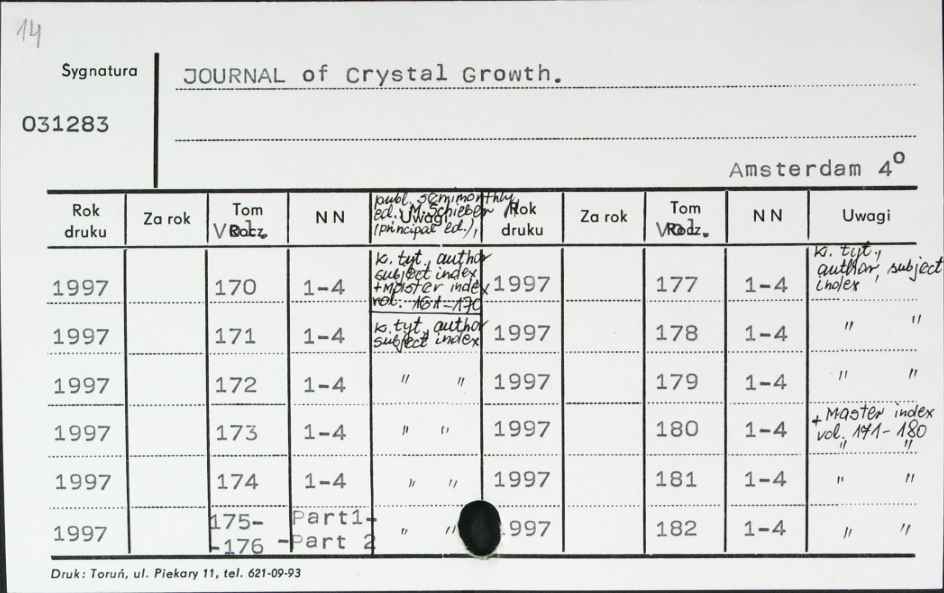 14
Sygnatura
JOURNAL of Crystal Growth.
031283
Amsterdam 4o
Rok druku Za rok Tom Rocz. Vol. N N Uwagi Rok druku Za rok Tom Rocz. Vol. N N Uwagi
publ. semimonthly
ed.: M. Schieber
(principal ed.),
1997 170 1-4 k. tyt., author subject index + Master index vol. 161-170 1997 177 1-4 k. tyt., author, subject index
1997 171 1-4 k. tyt., author subject index 1997 178 1-4 " "
1997 172 1-4 " " 1997 179 1-4 " "
1997 173 1-4 " " 1997 180 1-4 + Master index vol. 171-180 " "
1997 174 1-4 " " 1997 181 1-4 " "
1997 175--176 Part1--Part 2 " " 1997 182 1-4 " "
Druk: Toruń, ul. Piekary 11, tel. 621-09-93